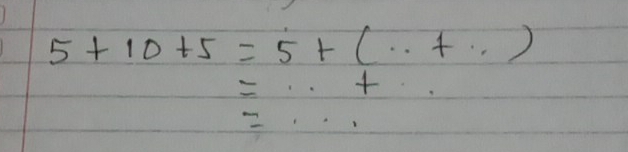 5 + 10 + 5 = 5 + ( .. + .. )
= .. + ..
= ...